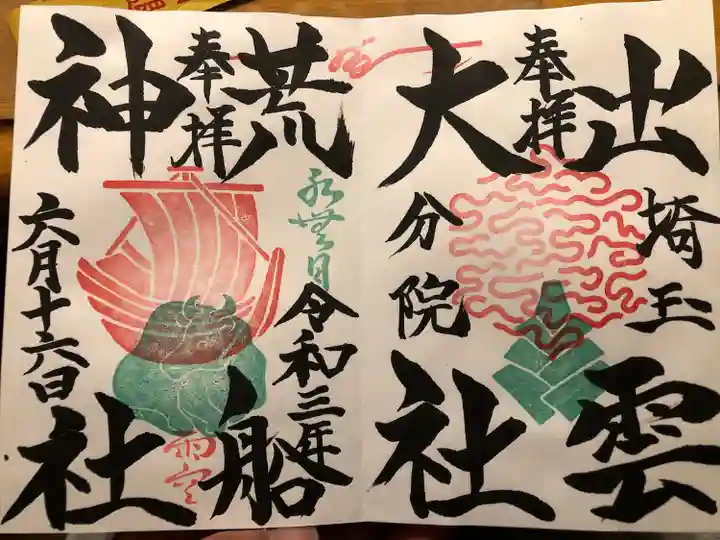 出雲
奉拝
大社
埼玉
分院
荒船
奉拝
神社
水無月
令和三年
六月十六日
雨空